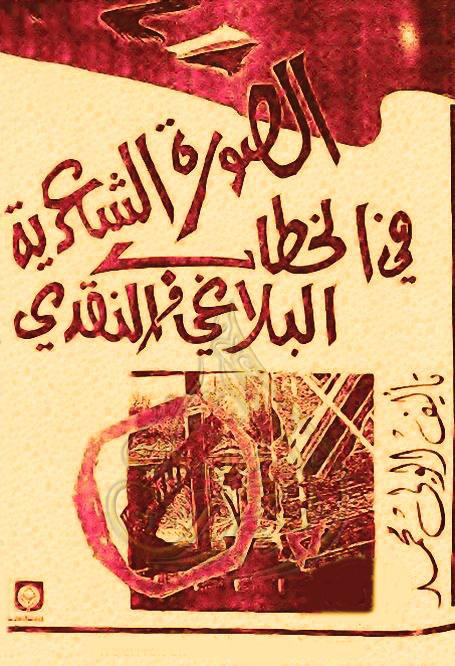 الصورة الشعرية
في الخطاب
البلاغي والنقدي
تأليف الولي محمد